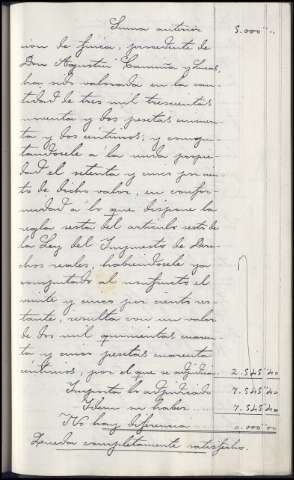 Suma anterior 5.000 "
cion de finca, procedente de
Don Agustin y Lucas,
ha sido valorada en la can-
tidad de tres mil trescientas
noventa y dos pesetas cincuen-
ta y dos centimos; y compu-
tandosele á la nuda propie-
dad el setenta y cinco por cien-
to de dicho valor, en confor-
midad á lo que dispone la
regla sesta del articulo sesto de
la Ley del Impuesto de Dere-
chos reales, habiendosele ya
computado al usufructo el
veinte y cinco por ciento res-
tante, resulta con un valor
de dos mil quinientas cuaren-
ta y cinco pesetas cuarenta
centimos, por el que se adjudica 2.545'40
Importa lo adjudicado 7.545'40
Idem su haber 7.545'40
No hay diferencia 0.000'00
Queda completamente satisfecho.